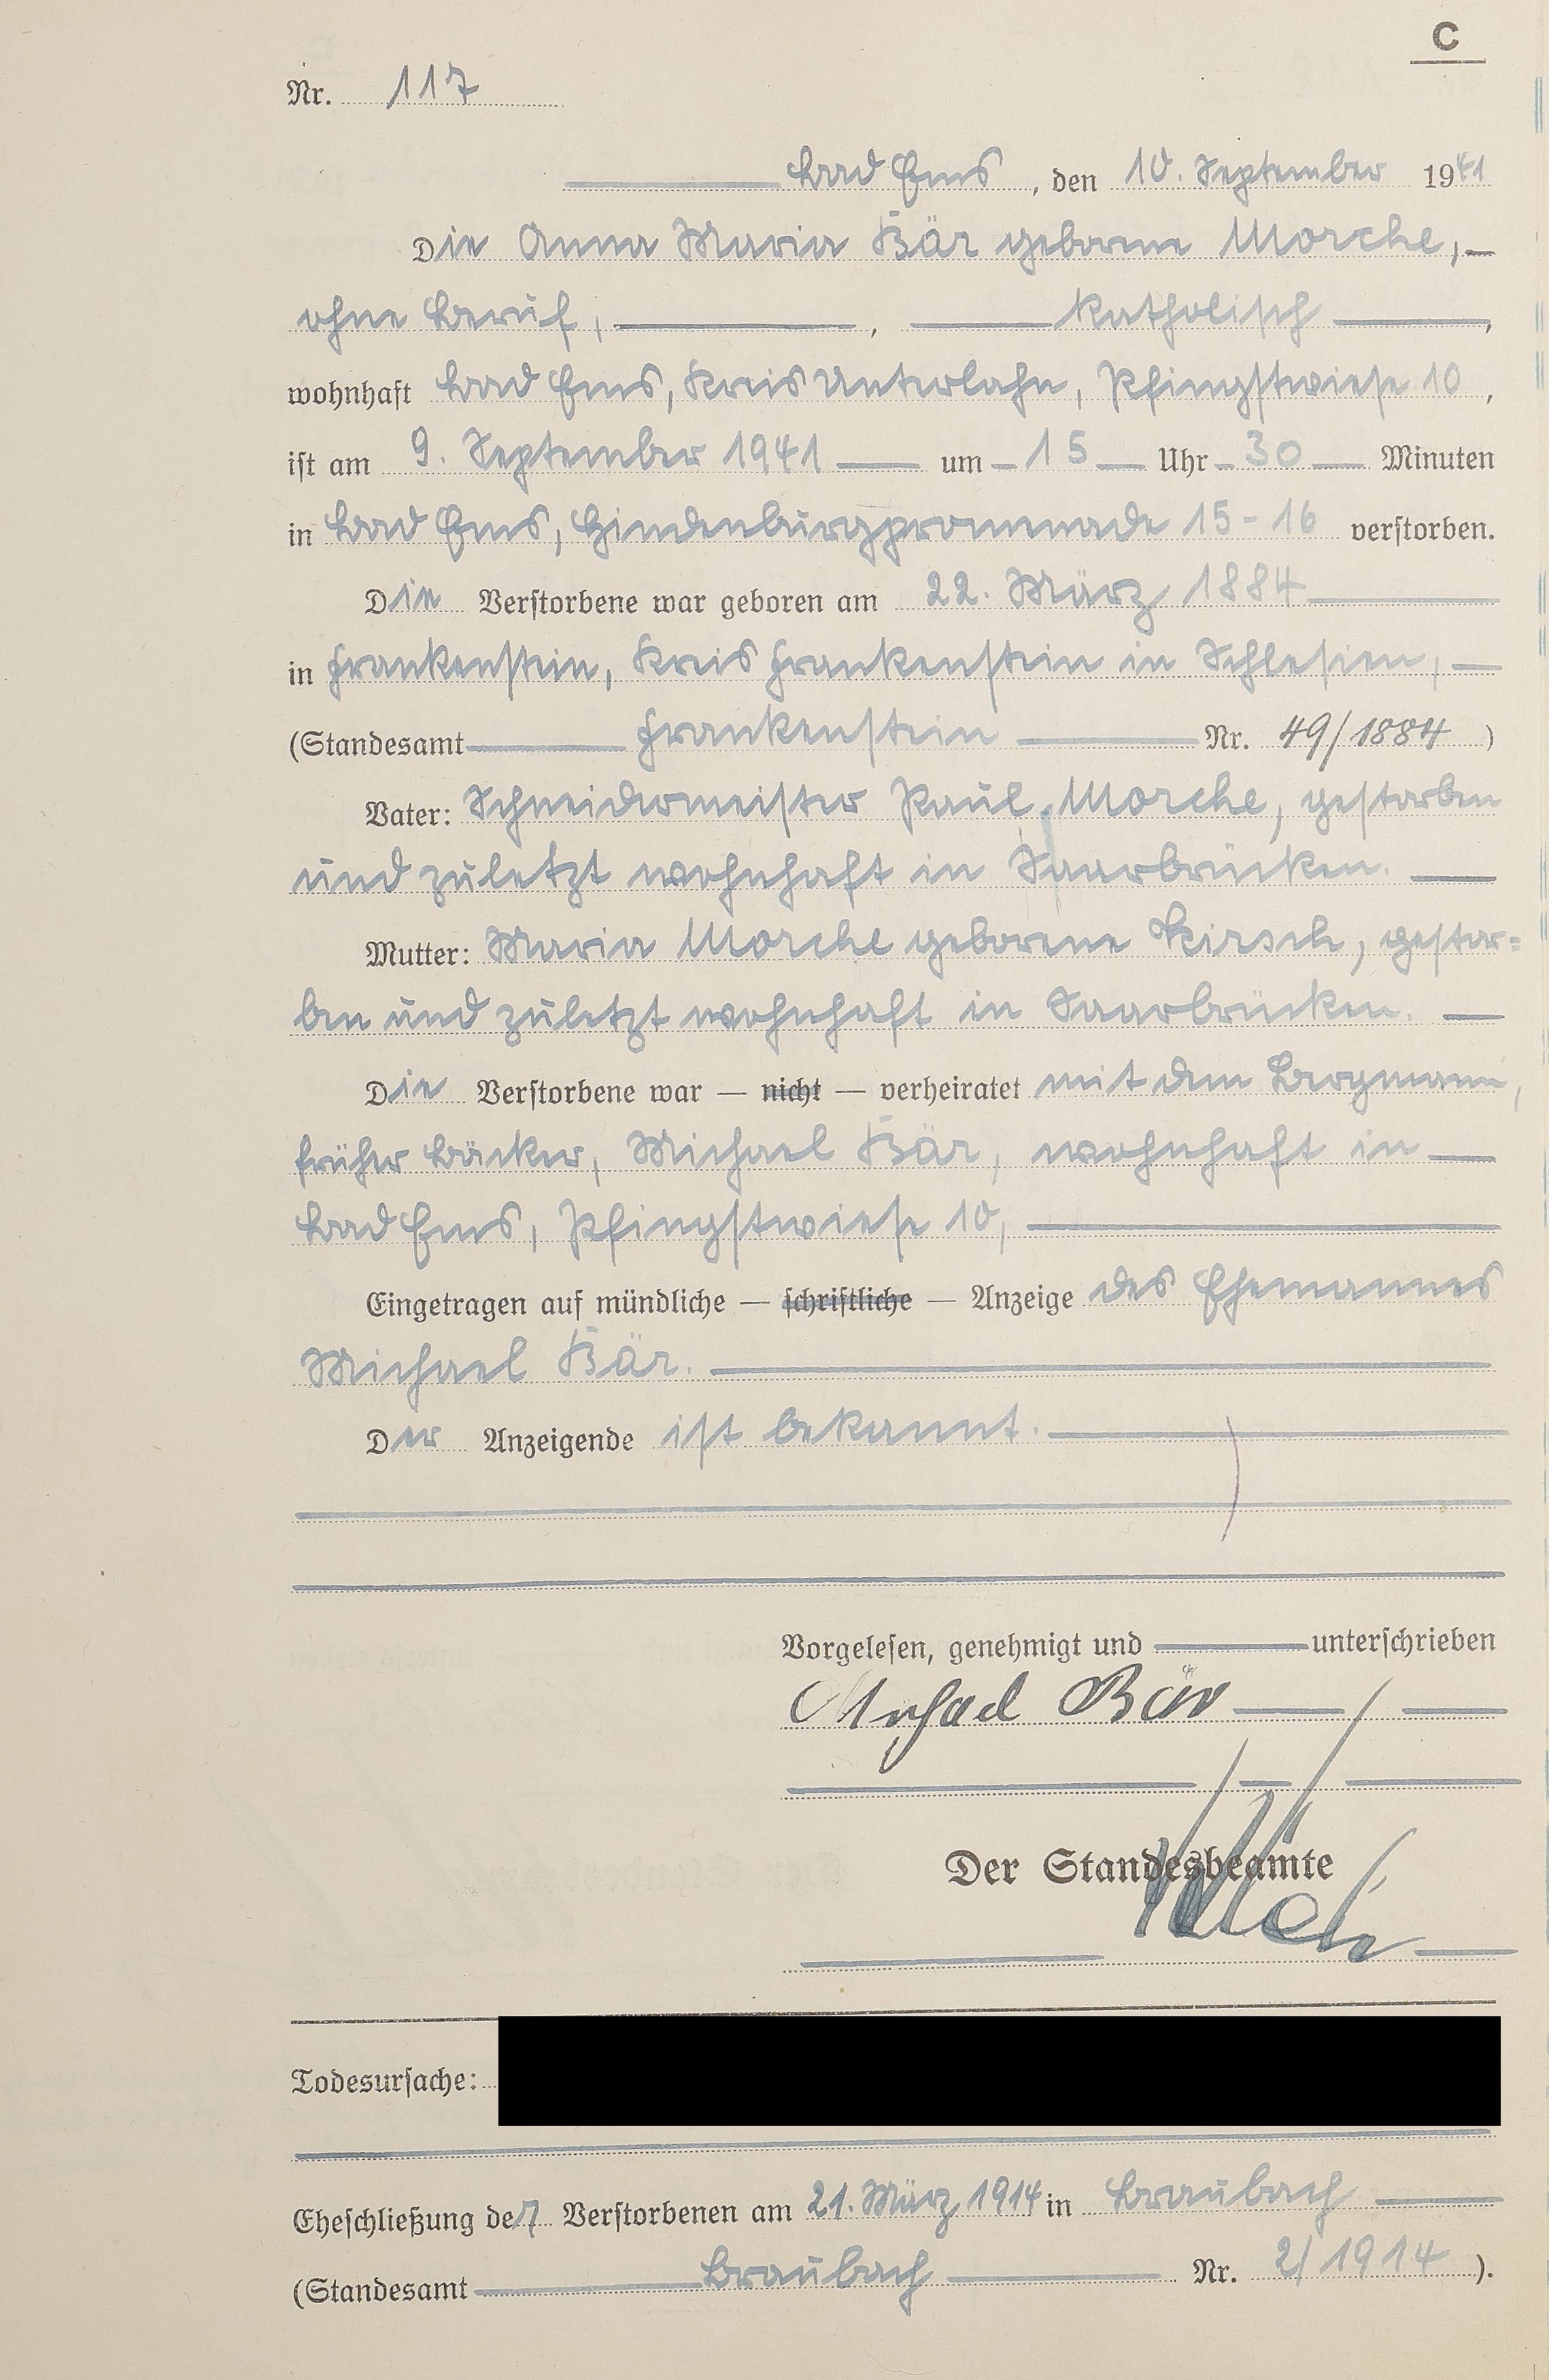 C
Nr. 117
Bad Ems, den 10. September 1941
Die Anna Maria Bär geborene Morche,
ohne Beruf, , katholisch ,
wohnhaft Bad Ems, Kreis Unterlahn, Pfingstwiese 10,
ist am 9. September 1941 um 15 Uhr 30 Minuten
in Bad Ems, Hindenburgpromenade 15-16 verstorben.
Die Verstorbene war geboren am 22. März 1884
in Frankenstein, Kreis Frankenstein in Schlesien,
(Standesamt Frankenstein Nr. 49/1884 )
Vater: Schneidermeister Paul Morche, gestorben
und zuletzt wohnhaft in Saarbrücken.
Mutter: Maria Morche geborene Kirsch, gestor=
ben und zuletzt wohnhaft in Saarbrücken.
Die Verstorbene war — nicht — verheiratet mit dem Bergmann,
früher Bäcker, Michael Bär, wohnhaft in
Bad Ems, Pfingstwiese 10,
Eingetragen auf mündliche — schriftliche — Anzeige des Ehemannes
Michael Bär.
Der Anzeigende ist bekannt.
Vorgelesen, genehmigt und unterschrieben
Michael Bär
Der Standesbeamte
Todesursache:
Eheschließung der Verstorbenen am 21. März 1914 in Braubach
(Standesamt Braubach Nr. 2/1914 ).